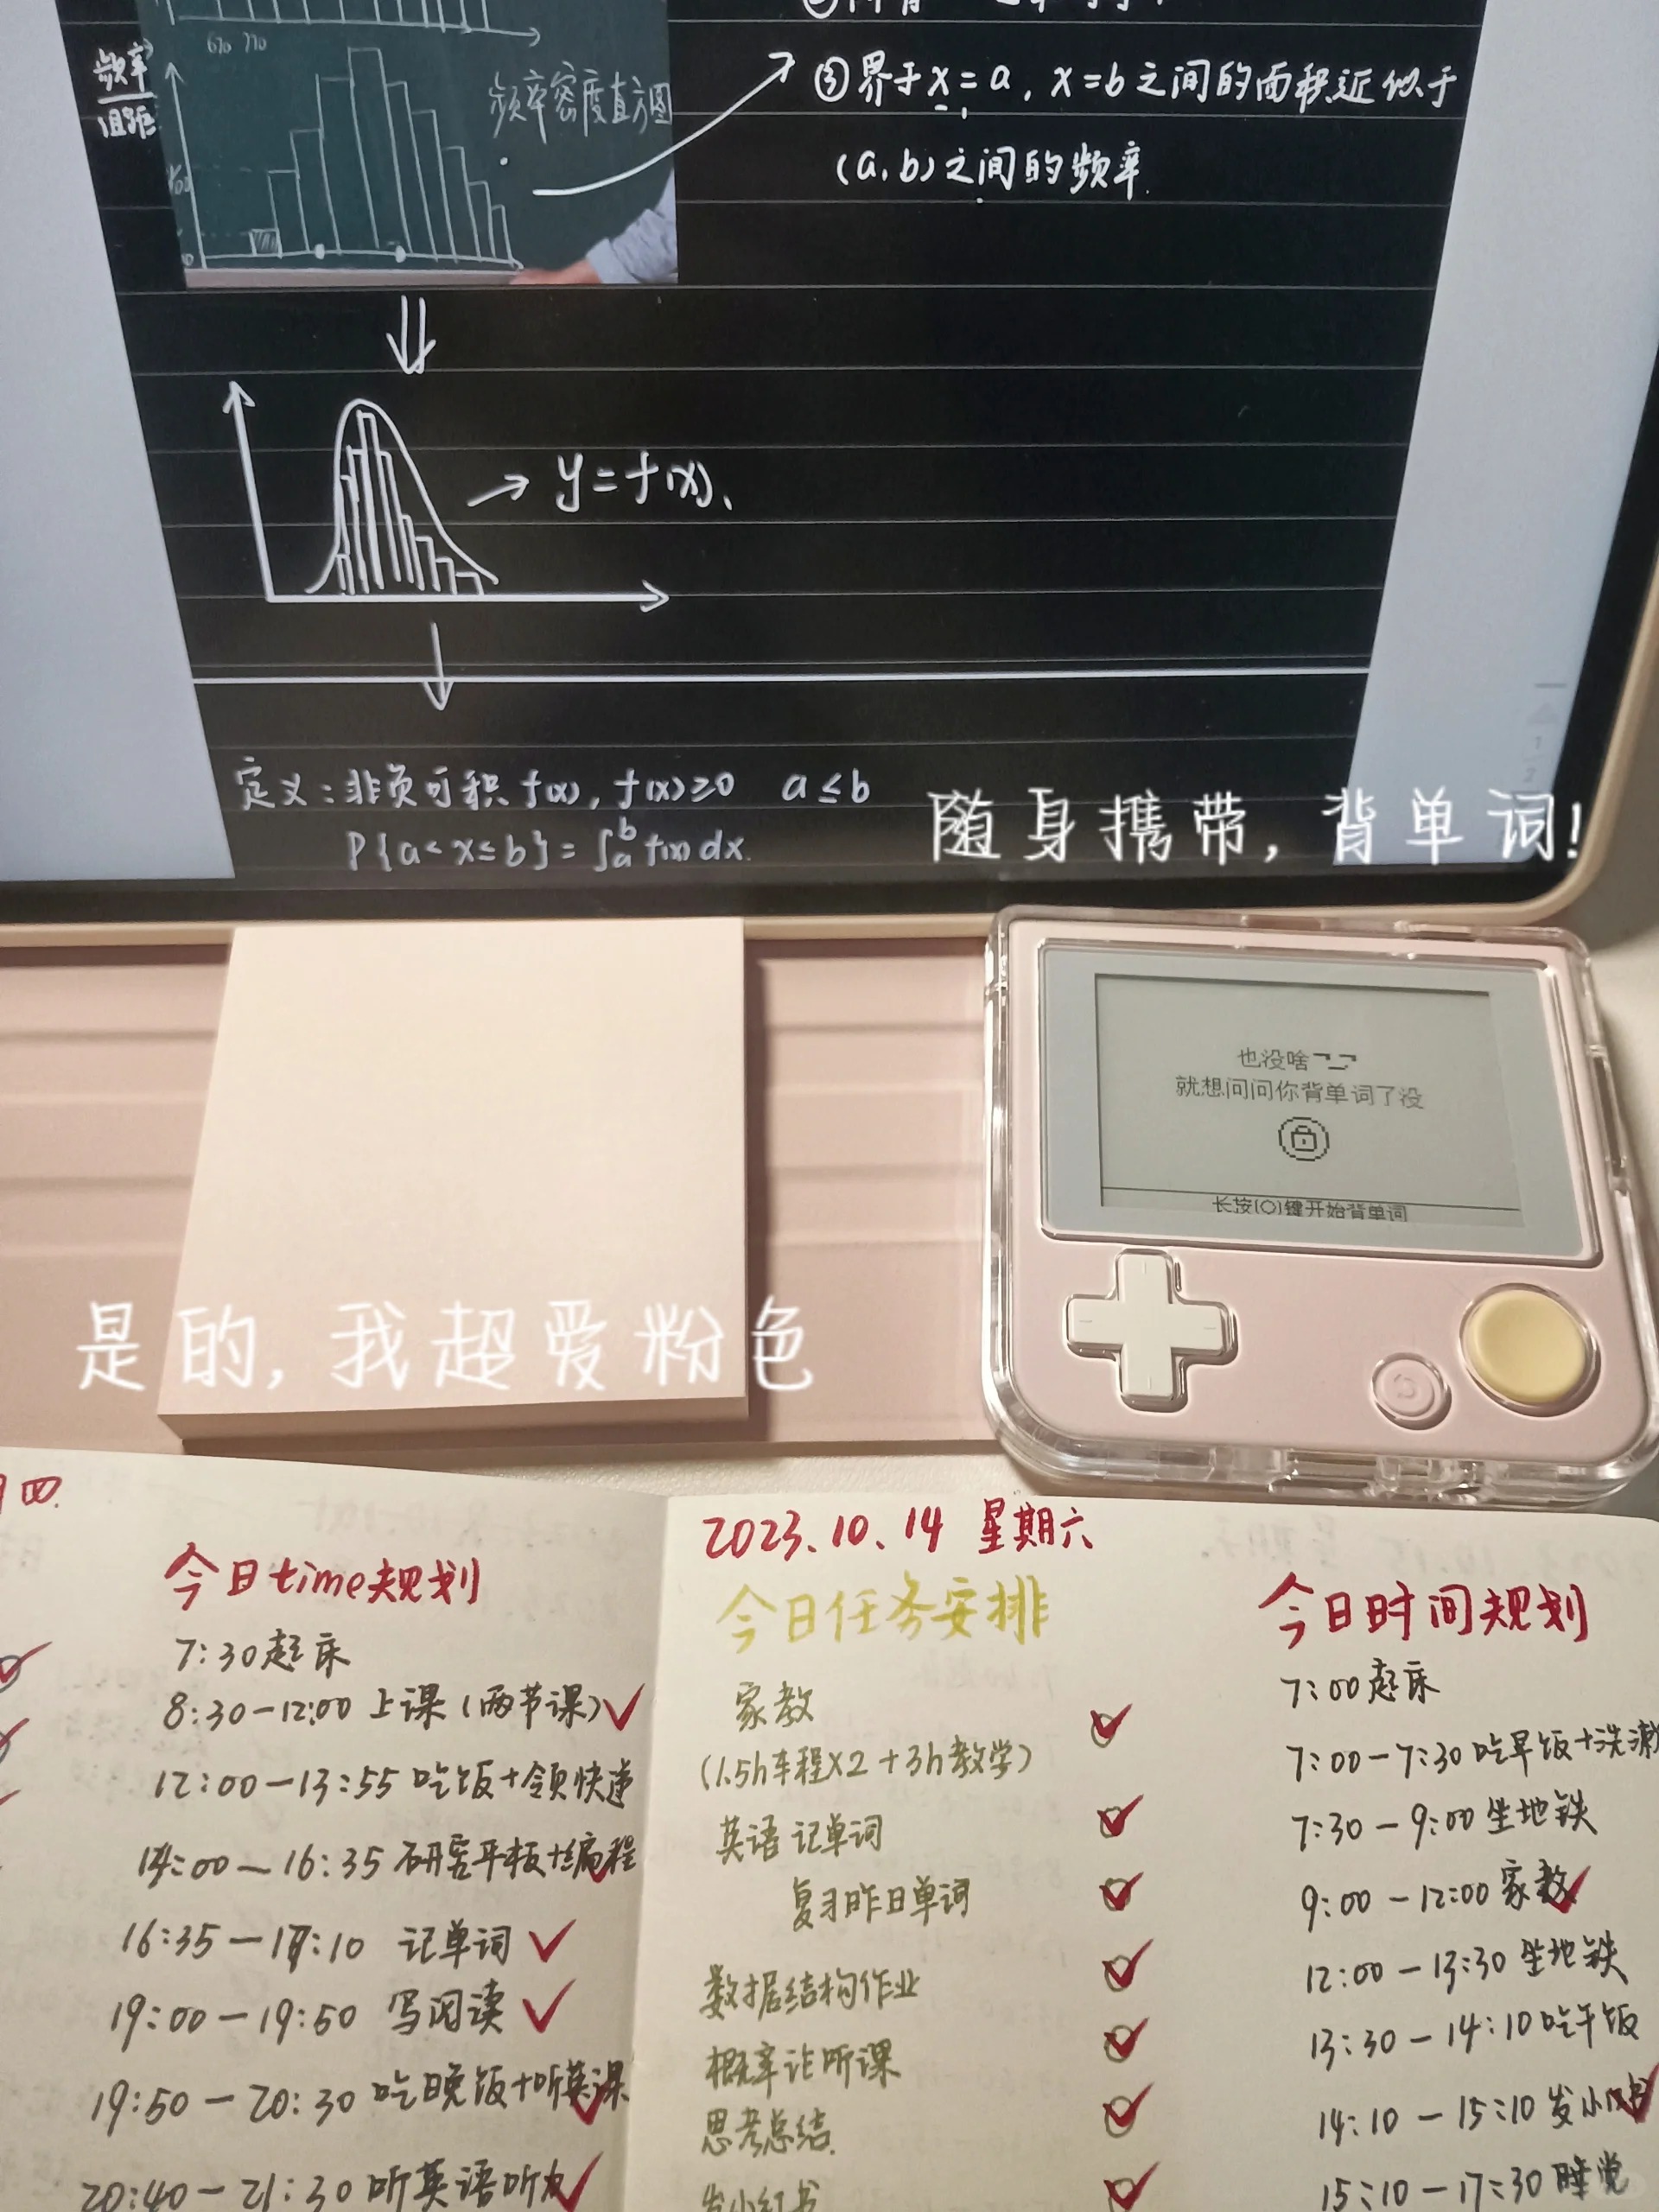 频率
组距
670 770
频率密度直方图
③界于x=a, x=b之间的面积近似于
(a,b)之间的频率.
y=f(x)、
定义:非负可积f(x), f(x)≥0 a≤b
P{a<x≤b}=∫ₐᵇf(x)dx.
随身携带,背单词!
也没啥
就想问问你背单词了没
长按(O)键开始背单词
是的,我超爱粉色
四.
今日time规划
7:30起床
8:30-12:00 上课(两节课)
12:00-13:55 吃饭+领快递
14:00-16:35 研究平板+编程
16:35-17:10 记单词
19:00-19:50 写阅读
19:50-20:30 吃晚饭+听英课
20:40-21:30 听英语听力
2023.10.14 星期六
今日任务安排
家教
(1.5h车程×2+3h教学)
英语 记单词
复习昨日单词
数据结构作业
概率论听课
思考总结.
发小红书
今日时间规划
7:00起床
7:00-7:30吃早饭+洗漱
7:30-9:00坐地铁
9:00-12:00家教
12:00-13:30坐地铁
13:30-14:10吃午饭
14:10-15:10发小红书
15:10-17:30睡觉